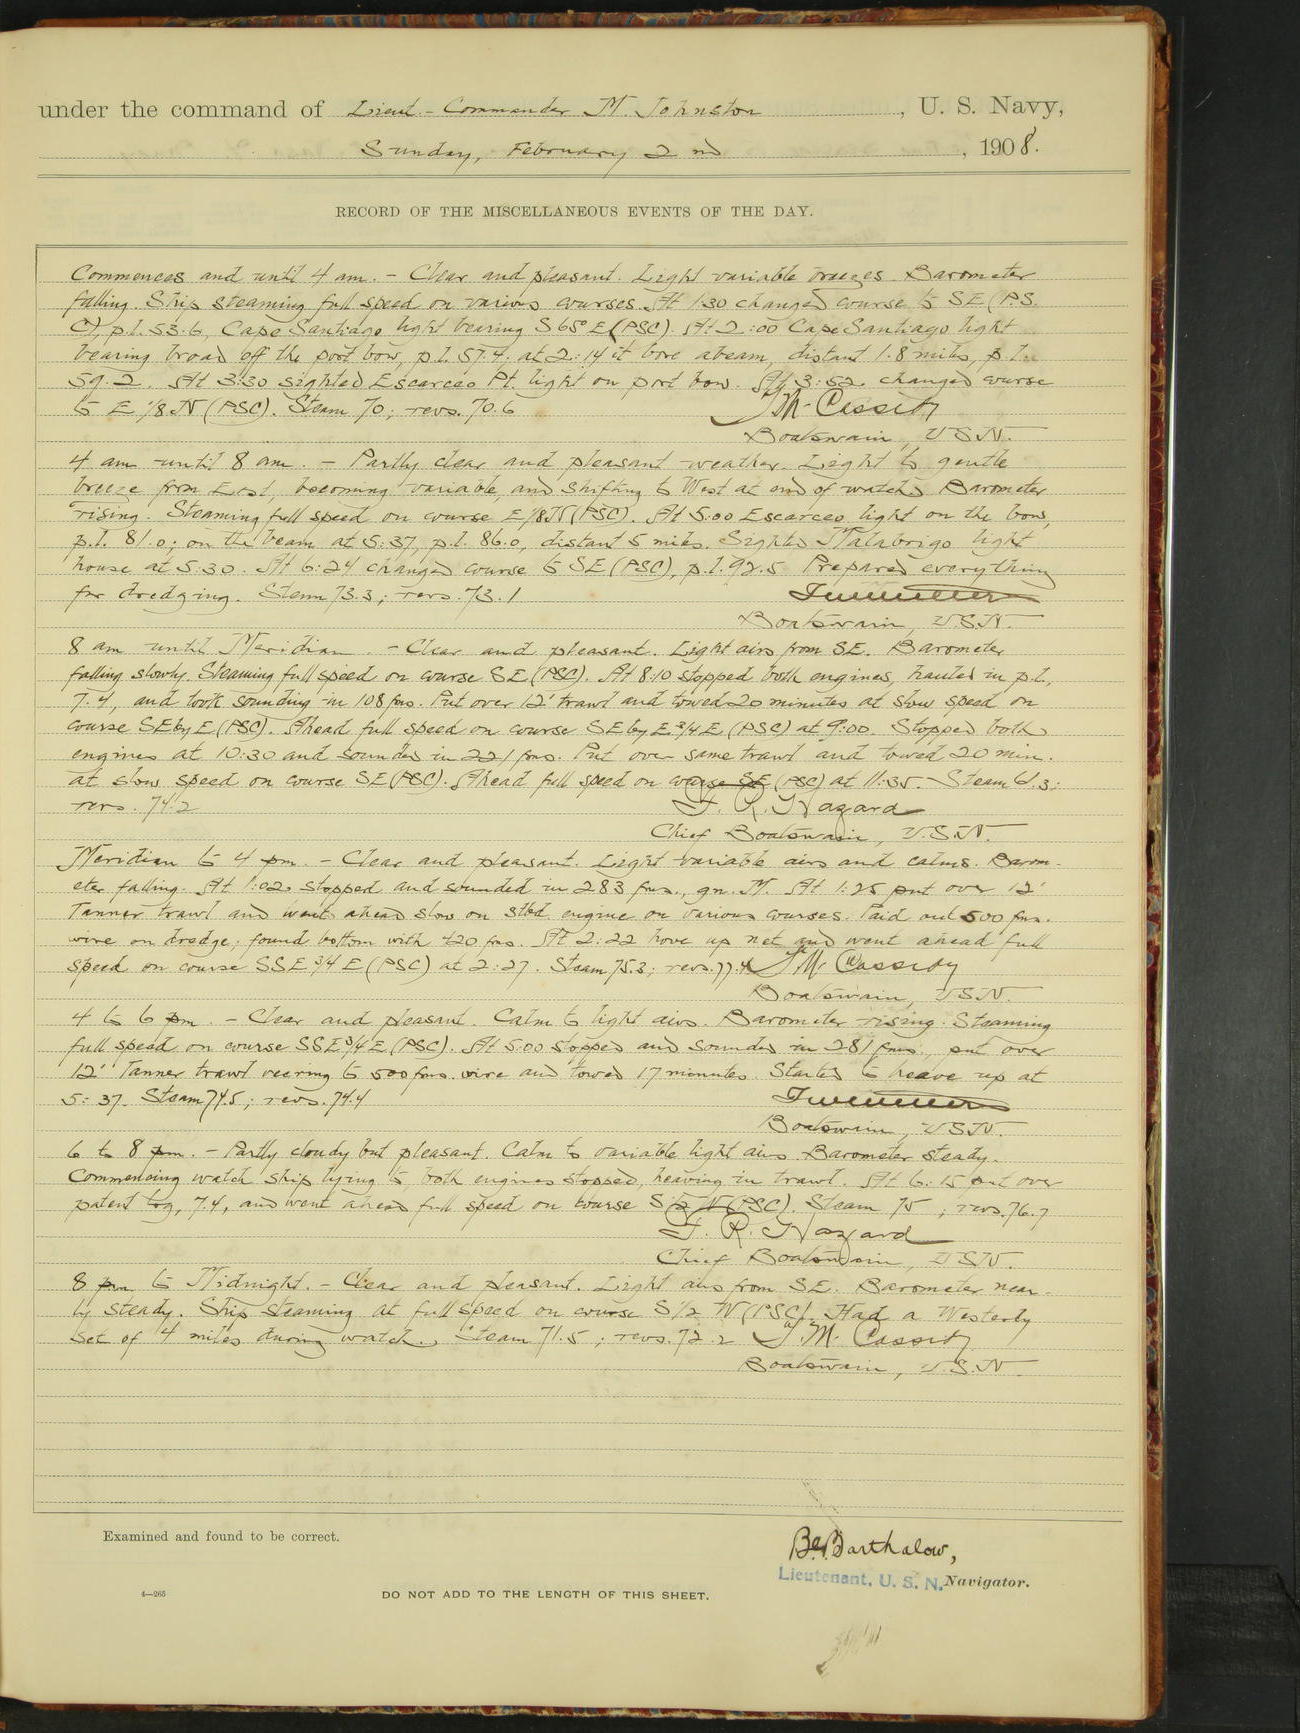 under the command of Lieut.-Commander M. Johnston, U. S. Navy,
Sunday, February 2nd, 1908.
RECORD OF THE MISCELLANEOUS EVENTS OF THE DAY.
Commences and until 4 am. - Clear and pleasant. Light variable breezes. Barometer
falling. Ship steaming full speed on various courses. At 1:30 changed course to SE (P.S.
C) p.l. 53.6, Cape Santiago light bearing S 65° E (PSC). At 2:00 Cape Santiago light
bearing broad off the port bow, p.l. 57.4. at 2:14 it bore abeam, distant 1.8 miles, p.l.
59.2. At 3:30 sighted Escarceo Pt. light on port bow. At 3:52 changed course
to E 1/8 N (PSC). Steam 70; revs. 70.6
T M Cassidy
Boatswain, USN.
4 am until 8 am. - Partly clear and pleasant weather. Light to gentle
breeze from East, becoming variable, and shifting to West at end of watch. Barometer
rising. Steaming full speed on course E 1/8 N (PSC). At 5:00 Escarceo light on the bow,
p.l. 81.0; on the beam at 5:37, p.l. 86.0, distant 5 miles. Sighted Malabrigo light
house at 5:30. At 6:24 changed course to SE (PSC), p.l. 92.5 Prepared everything
for dredging. Steam 73.3; revs. 73.1
Boatswain, U.S.N.
8 am until Meridian. - Clear and pleasant. Light airs from SE. Barometer
falling slowly. Steaming full speed on course SE (PSC). At 8:10 stopped both engines, hauled in p.l.,
7.4, and took sounding in 108 fms. Put over 12' trawl and towed 20 minutes at slow speed on
course SE by E (PSC). Ahead full speed on course SE by E 3/4 E (PSC) at 9:00. Stopped both
engines at 10:30 and sounded in 221 fms. Put over same trawl and towed 20 min.
at slow speed on course SE (PSC). Ahead full speed on course SE (PSC) at 11:35. Steam 61.3;
revs. 74.2
F. R. Hazard
Chief Boatswain, U.S.N.
Meridian to 4 pm. - Clear and pleasant. Light variable airs and calms. Barom-
eter falling. At 1:02 stopped and sounded in 283 fms., gn. M. At 1:25 put over 12'
Tanner trawl and went ahead slow on stbd. engine on various courses. Paid out 500 fms.
wire on dredge; found bottom with 420 fms. At 2:22 hove up net and went ahead full
speed on course SSE 3/4 E (PSC) at 2:27. Steam 75.3; revs. 77.4 T M Cassidy
Boatswain, USN.
4 to 6 pm. - Clear and pleasant. Calm to light airs. Barometer rising. Steaming
full speed on course SSE 3/4 E (PSC). At 5:00 stopped and sounded in 281 fms., put over
12' Tanner trawl veering to 500 fms. wire and towed 17 minutes. Started to heave up at
5:37. Steam 74.5; revs. 74.4
Boatswain, USN.
6 to 8 pm. - Partly cloudy but pleasant. Calm to variable light airs. Barometer steady.
Commencing watch ship lying to, both engines stopped, heaving in trawl. At 6:15 put over
patent log, 7.4, and went ahead full speed on course S 1/2 W (PSC). Steam 75; revs. 76.7
F. R. Hazard
Chief Boatswain, USN.
8 pm to Midnight. - Clear and pleasant. Light airs from SE. Barometer near-
ly steady. Ship steaming at full speed on course S 1/2 W (PSC). Had a Westerly
set of 4 miles during watch. Steam 71.5; revs. 72.2 T M Cassidy
Boatswain, U.S.N.
Examined and found to be correct.
Barthalow,
Lieutenant, U. S. N. Navigator.
4—265
DO NOT ADD TO THE LENGTH OF THIS SHEET.